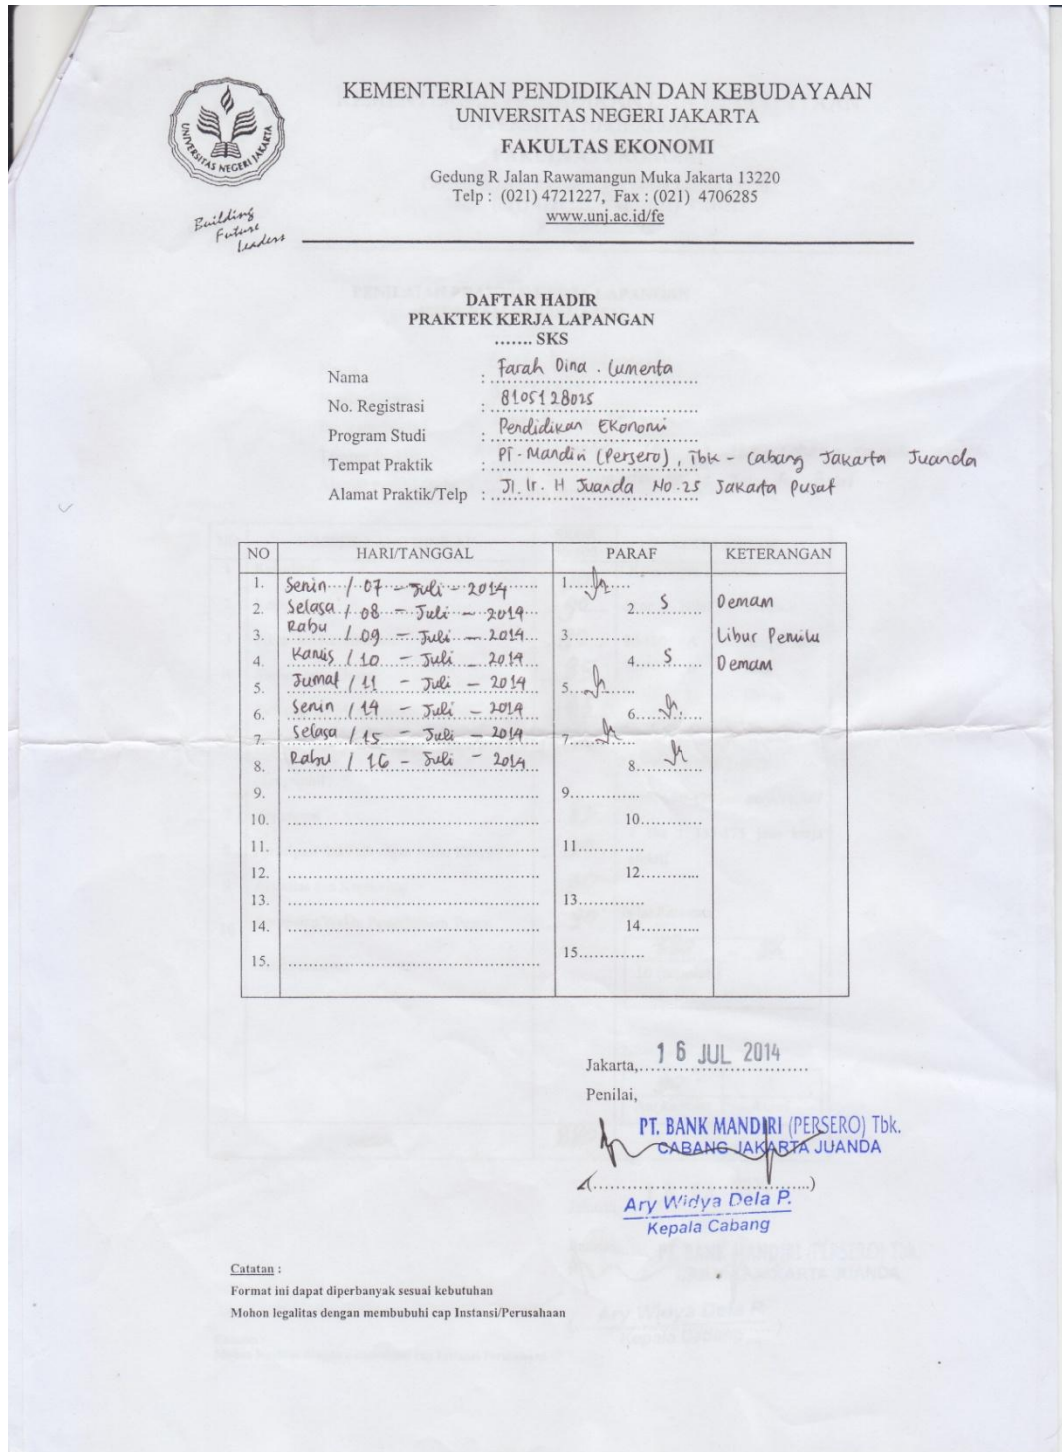 KEMENTERIAN PENDIDIKAN DAN KEBUDAYAAN
UNIVERSITAS NEGERI JAKARTA
FAKULTAS EKONOMI
Gedung R Jalan Rawamangun Muka Jakarta 13220
Telp : (021) 4721227, Fax : (021) 4706285
www.unj.ac.id/fe
UNIVERSITAS NEGERI JAKARTA
Building
Future
Leaders
DAFTAR HADIR
PRAKTEK KERJA LAPANGAN
....... SKS
Nama : Farah Dina . Lumenta
No. Registrasi : 8105128025
Program Studi : Pendidikan Ekonomi
Tempat Praktik : PT. Mandiri (Persero), Tbk - Cabang Jakarta Juanda
Alamat Praktik/Telp : Jl. Ir. H Juanda No.25 Jakarta Pusat
NO HARI/TANGGAL PARAF KETERANGAN
1. Senin / 07 - Juli - 2014 1.
2. Selasa / 08 - Juli - 2014 2. S Demam
3. Rabu / 09 - Juli - 2014 3. Libur Pemilu
4. Kamis / 10 - Juli - 2014 4. S Demam
5. Jumat / 11 - Juli - 2014 5.
6. Senin / 14 - Juli - 2014 6.
7. Selasa / 15 - Juli - 2014 7.
8. Rabu / 16 - Juli - 2014 8.
9. 9.
10. 10.
11. 11.
12. 12.
13. 13.
14. 14.
15. 15.
Jakarta, 16 JUL 2014
Penilai,
PT. BANK MANDIRI (PERSERO) Tbk.
CABANG JAKARTA JUANDA
(....................................)
Ary Widya Dela P.
Kepala Cabang
Catatan :
Format ini dapat diperbanyak sesuai kebutuhan
Mohon legalitas dengan membubuhi cap Instansi/Perusahaan